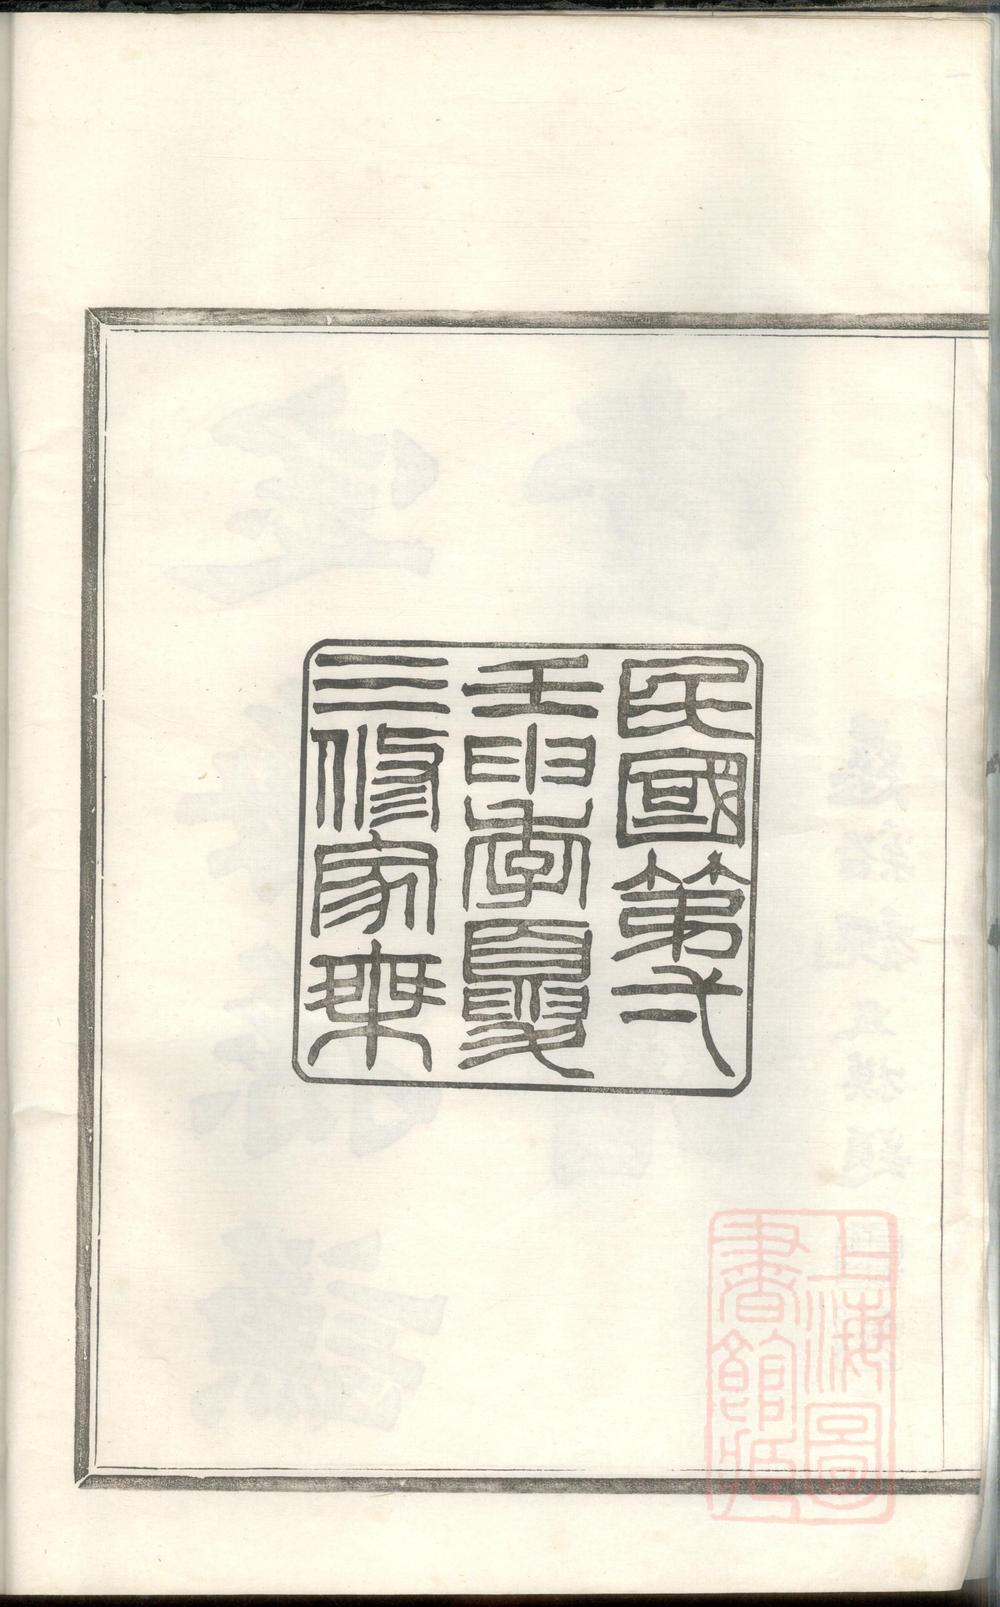 民國第弌
壬申季夏
三修家乘
上海圖
書館藏